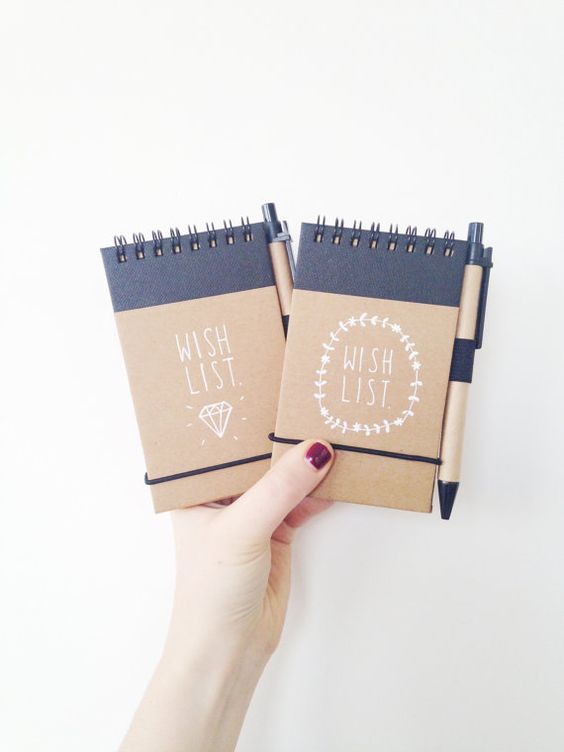 WISH
LIST.
WISH
LIST.